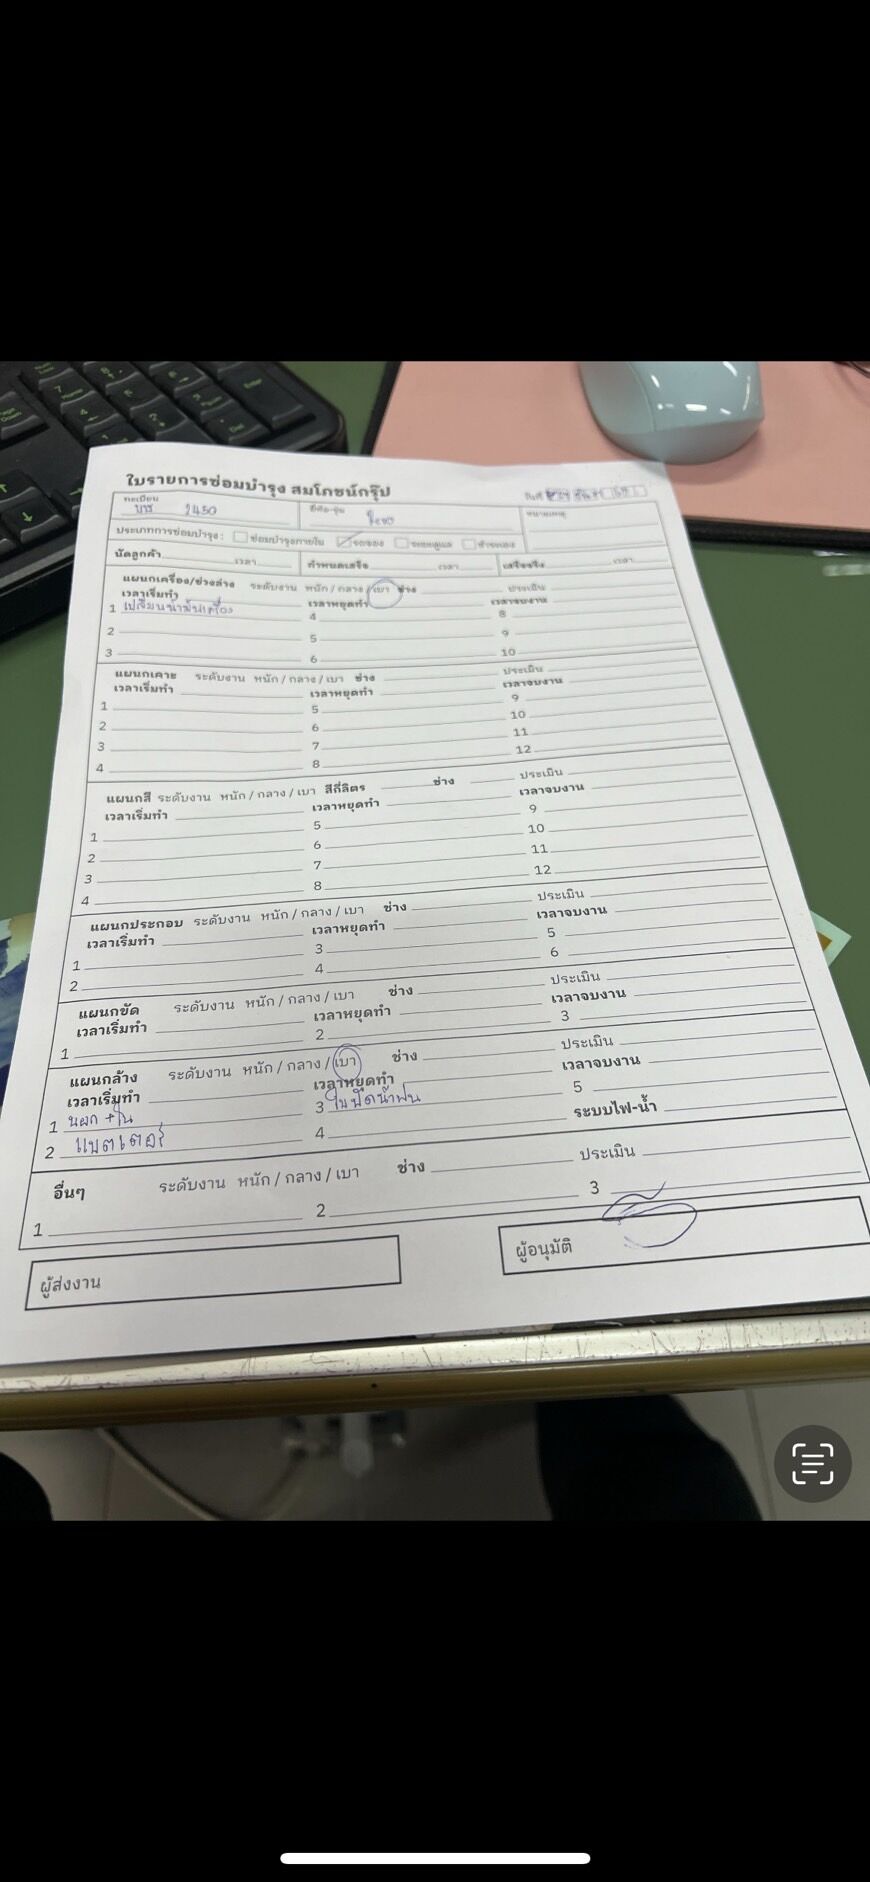 ใบรายการซ่อมบำรุง สมโภชน์กรุ๊ป
ทะเบียน 2450 ยี่ห้อ-รุ่น Revo หมายเหตุ
ประเภทการซ่อมบำรุง : ซ่อมบำรุงภายใน รถจอง
นัดลูกค้า เวลา กำหนดเสร็จ เวลา เสร็จจริง เวลา
แผนกเครื่อง/ช่วงล่าง ระดับงาน หนัก / กลาง / เบา ช่าง ประเมิน
เวลาเริ่มทำ เวลาหยุดทำ เวลาจบงาน
1 เปลี่ยนน้ำมันเครื่อง 4 8
2 5 9
3 6 10
แผนกเคาะ ระดับงาน หนัก / กลาง / เบา ช่าง ประเมิน
เวลาเริ่มทำ เวลาหยุดทำ เวลาจบงาน
1 5 9
2 6 10
3 7 11
4 8 12
แผนกสี ระดับงาน หนัก / กลาง / เบา สีกี่ลิตร ช่าง ประเมิน
เวลาเริ่มทำ เวลาหยุดทำ เวลาจบงาน
1 5 9
2 6 10
3 7 11
4 8 12
แผนกประกอบ ระดับงาน หนัก / กลาง / เบา ช่าง ประเมิน
เวลาเริ่มทำ เวลาหยุดทำ เวลาจบงาน
1 3 5
2 4 6
แผนกขัด ระดับงาน หนัก / กลาง / เบา ช่าง ประเมิน
เวลาเริ่มทำ เวลาหยุดทำ เวลาจบงาน
1 2 3
แผนกล้าง ระดับงาน หนัก / กลาง / เบา ช่าง ประเมิน
เวลาเริ่มทำ เวลาหยุดทำ เวลาจบงาน
1 3 ใบปัดน้ำฝน 5
2 แบตเตอรี่ 4 ระบบไฟ-น้ำ
อื่นๆ ระดับงาน หนัก / กลาง / เบา ช่าง ประเมิน
1 2 3
ผู้ส่งงาน ผู้อนุมัติ